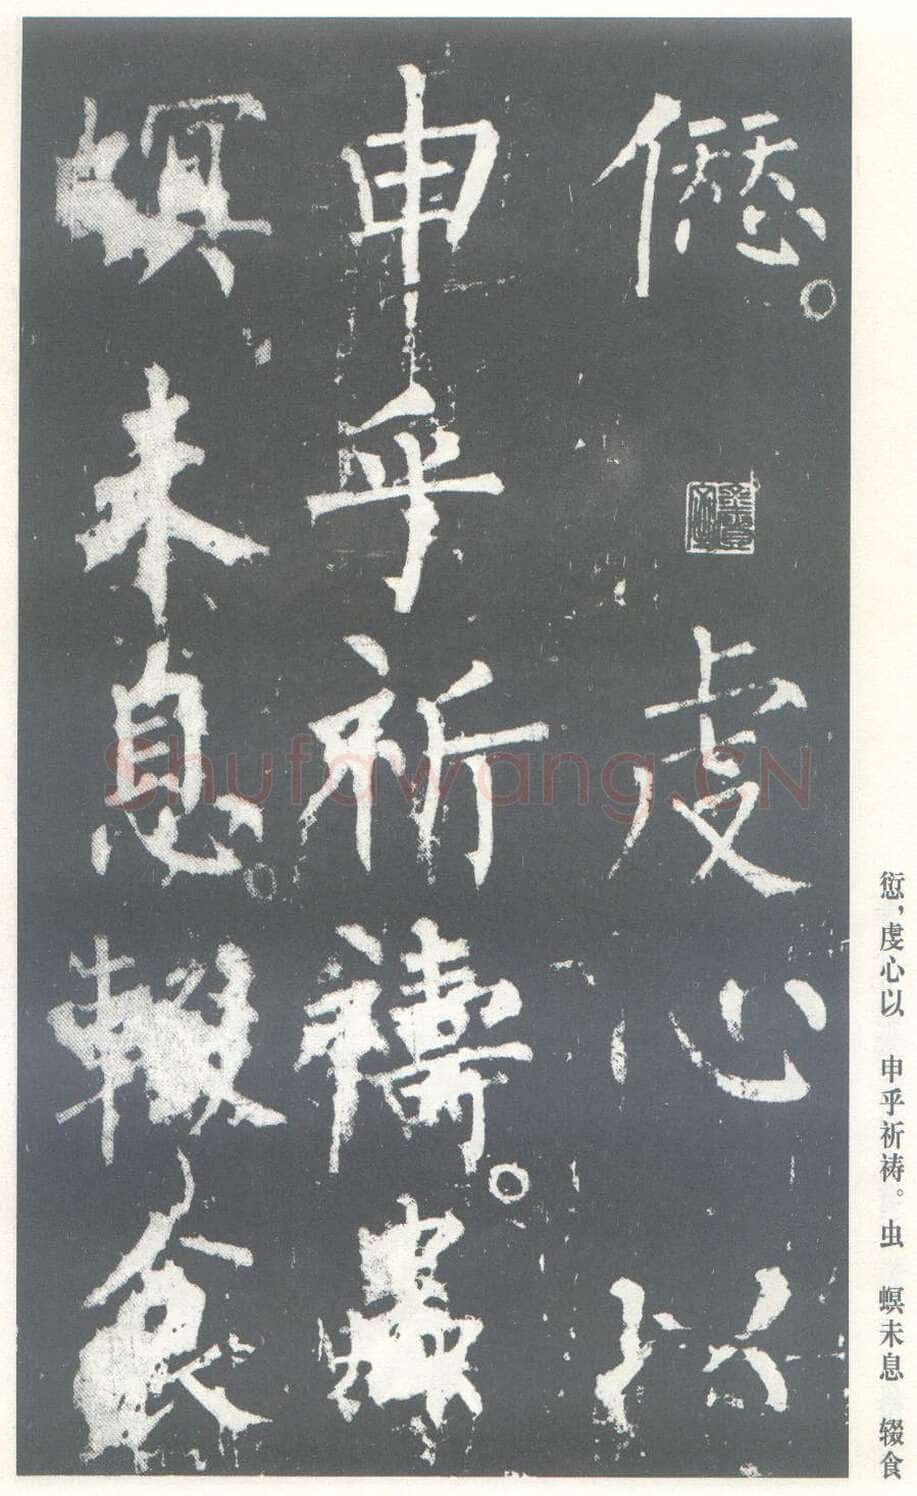 𠎝。虔心以
申乎祈禱。蟲
螟未息。輟食
愆，虔心以　申乎祈祷。虫　螟未息　辍食
Shufawang.CN